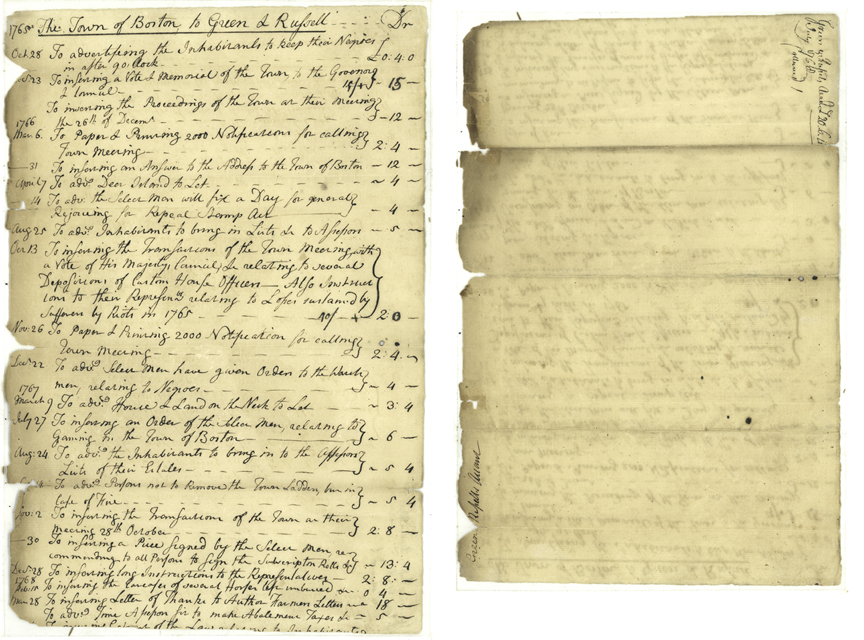 1765 The Town of Boston to Green & Russell Dr
Oct 28 To advertising the Inhabitants to keep their Negroes
in after 9 o'Clock £0:4:0
23 To inserting a Vote & Memorial of the Town to the Governor
& Council 15
To inserting the Proceedings of the Town at their Meeting
the 26th of Decemr 12
1766
Mar. 6. To Paper & Printing 2000 Notifications for calling
Town Meeting 2:4
31 To inserting an Answer to the Address to the Town of Boston 12
April 7 To advg Deer Island to Let 4
14 To adv. the Select Men will fix a Day for general
Rejoicing for Repeal Stamp Act 4
Aug 25 To advg Inhabitants to bring in Lists &c to Assessors 5
Oct 13 To inserting the Transactions of the Town Meeting with
a Vote of His Majesty's Council, &c relating to several
Depositions of Custom House Officers Also Instruct
ions to their Represent relating to Losses sustained by
Sufferers by Riots in 1765 40/ 2:0
Nov. 26 To Paper & Printing 2000 Notification for calling
Town Meeting 2:4
Decr 22 To advg Select Men have given Orders to the Watch
men, relating to Negroes 4
1767
March 9 To advg House & Land on the Neck to Let 3:4
July 27 To inserting an Order of the Select Men, relating to
Gaming in the Town of Boston 6
Aug: 24 To advg the Inhabitants to bring in to the Assessors
Lists of their Estates 5 4
To advg Persons not to Remove the Town Ladders, but in
Case of Fire 5 4
Nov: 2 To inserting the Transactions of the Town at their
Meeting 28th October 2:8
30 To inserting a Piece Signed by the Select Men, re
commending to all Persons to sign the Subscription Rolls &c 13:4
Decr 28 To inserting long Instructions to the Representatives 2:8:
1768
To inserting the Carcases of several Horses left unburied &c 0 4
Mar 28 To inserting Letter of Thanks to Author Farmers Letters 18
To advg Time Assessors sit to make Abatement Taxes &c 5
Green & Russell's Account